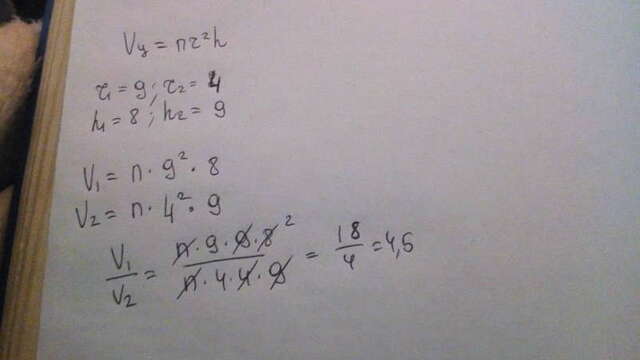 Vц = πr²h
r₁ = 9 ; r₂ = 4
h₁ = 8 ; h₂ = 9
V₁ = π · 9² · 8
V₂ = π · 4² · 9
V₁/V₂ = π · 9 · 9 · 8 ²/π · 4 · 4 · 9 = 18/4 = 4,5